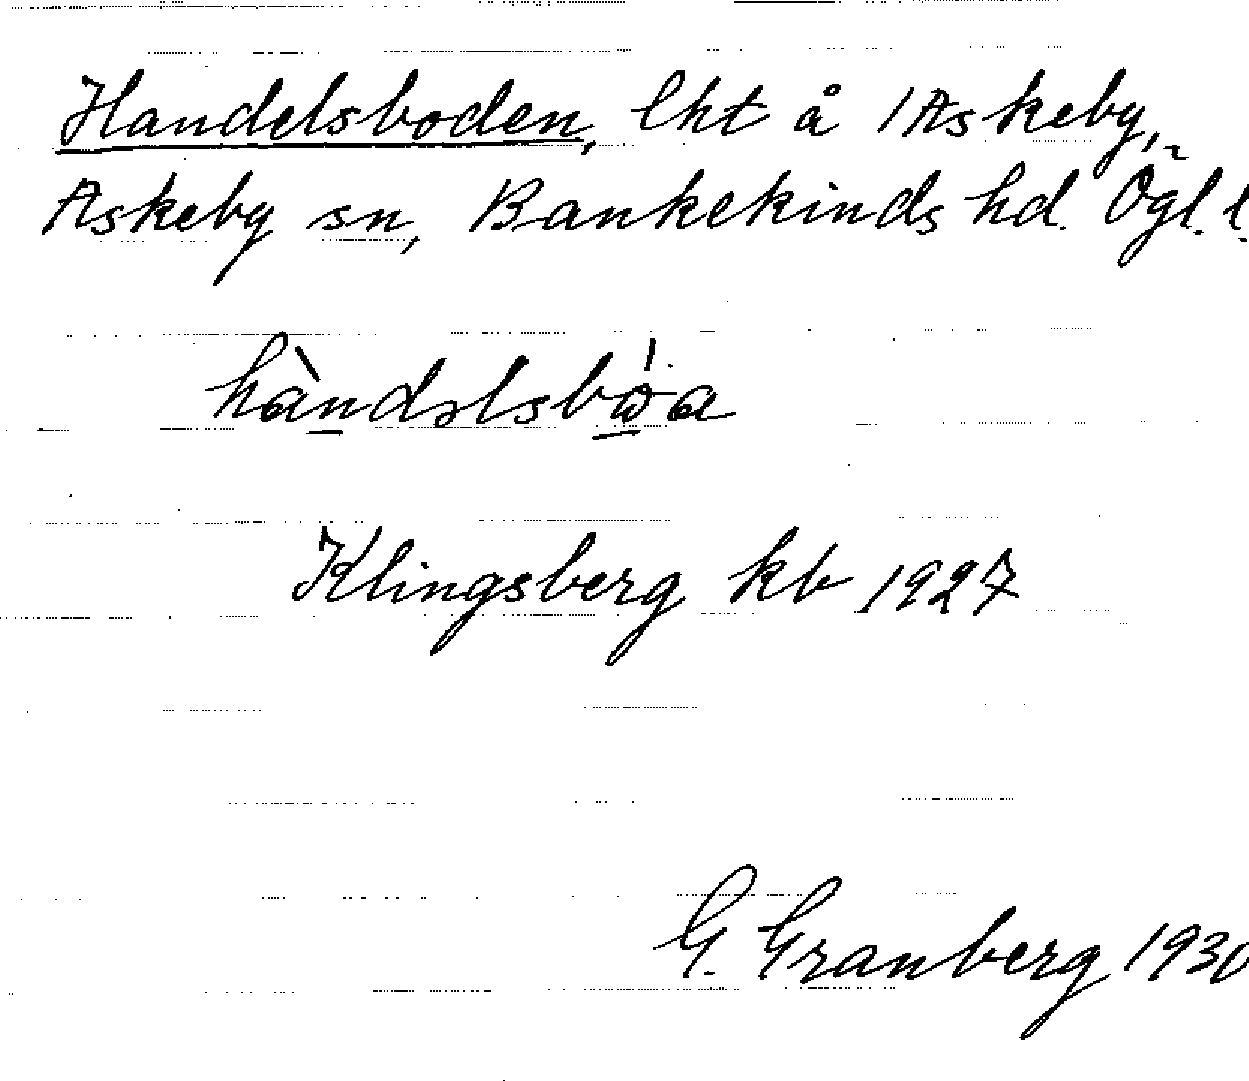 Handelsboden, lht å 1 Askeby,
Askeby sn, Bankekinds hd. Ögl. l.
hàndəlsbω̇a
Klingsberg kb 1927
G. Granberg 1930